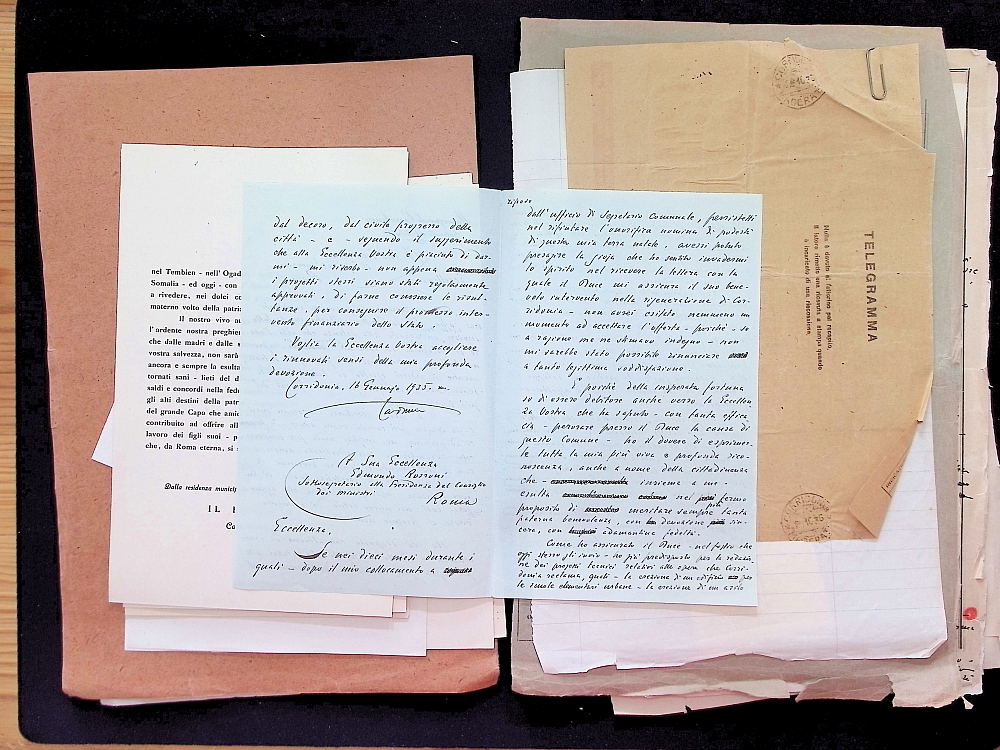 nel Tembien - nell'Ogad
Somalia - ed oggi - con
a rivedere, nei dolci co
materno volto della patria
Il nostro vivo au
l'ardente nostra preghier
che dalle madri e dalle s
vostra salvezza, non sarà
ancora e sempre la esulta
tornati sani - lieti del d
saldi e concordi nella fede
gli alti destini della patr
del grande Capo che amic
contribuito ad offrire all
lavoro dei figli suoi - p
che, da Roma eterna, si
Dalla residenza municip
IL
Ca
dal decoro, dal civile progresso della
città - e - seguendo il suggerimento
che alla Eccellenza Vostra è piaciuto di dar-
mi - mi riserbo - non appena
i progetti stessi siano stati regolarmente
approvati, di farne conoscere le risul-
tanze, per conseguire il promesso inter-
vento finanziario dello Stato.
Voglia la Eccellenza Vostra accogliere
i rinnovati sensi della mia profonda
devozione.
Corridonia, 16 Gennajo 1935. XIII.
A Sua Eccellenza
Edmondo Rossoni
Sottosegretario alla Presidenza del Consiglio
dei Ministri
Roma
Eccellenza,
Se nei dieci mesi durante i
quali - dopo il mio collocamento a
riposo
dall'ufficio di Segretario Comunale, persistetti
nel rifiutare l'onorifica nomina di podestà
di questa mia terra natale, avessi potuto
presagire la gioja che ho sentito invadermi
lo spirito nel ricevere la lettera con la
quale il Duce mi assicura il suo bene-
volo intervento nella rigenerazione di Cor-
ridonia - non avrei esitato nemmeno un
momento ad accettare l'offerta - poichè - se
a ragione me ne stimavo indegno - non
mi sarebbe stato possibile rinunciare
a tanto legittima soddisfazione.
E poichè della insperata fortuna
so di essere debitore anche verso la Eccellen
za Vostra che ha saputo - con tanta effica
cia - perorare presso il Duce la causa di
questo Comune - ho il dovere di esprimer-
le tutta la mia più viva e profonda rico-
noscenza, anche a nome della cittadinanza
che - insieme a me -
esulta nel più fermo
proposito di meritare sempre più tanta
paterna benevolenza, con devozione sin-
cera, con adamantina fedeltà.
Come ho assicurato il Duce - nel foglio che
oggi stesso gli invio - ho già predisposto per la redazio-
ne dei progetti tecnici relativi alle opere che Corri-
donia reclama, quali - la erezione di un edificio per
le scuole elementari urbane - la creazione di un asilo
TELEGRAMMA
Nulla è dovuto al fattorino pel recapito.
Il fattorino rimette una ricevuta a stampa quando
è incaricato di una riscossione.